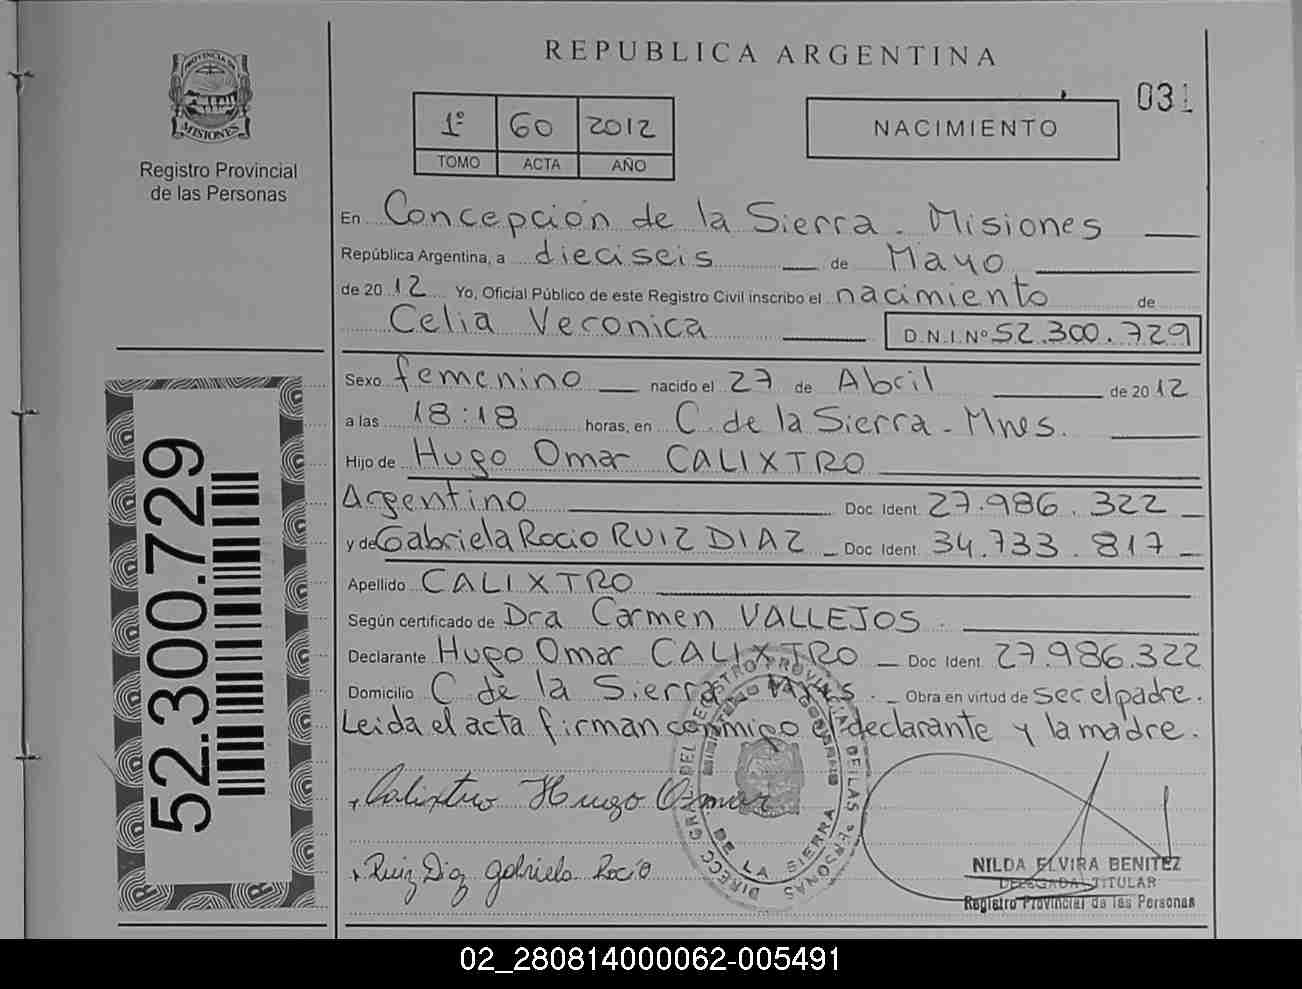 REPUBLICA ARGENTINA
PROVINCIA DE
MISIONES
Registro Provincial
de las Personas
1º 60 2012
TOMO ACTA AÑO
NACIMIENTO
031
En Concepción de la Sierra. Misiones
República Argentina, a dieciseis de Mayo
de 2012 Yo, Oficial Público de este Registro Civil inscribo el nacimiento de
Celia Veronica D.N.I.Nº 52.300.729
Sexo femenino nacido el 27 de Abril de 2012
a las 18:18 horas, en C. de la Sierra - Mnes.
Hijo de Hugo Omar CALIXTRO
Argentino Doc. Ident. 27.986.322
y de Gabriela Rocio RUIZ DIAZ Doc. Ident. 34.733.817
Apellido CALIXTRO
Según certificado de Dra Carmen VALLEJOS.
Declarante Hugo Omar CALIXTRO Doc. Ident. 27.986.322
Domicilio C de la Sierra - Mnes. Obra en virtud de ser el padre.
Leida el acta firman conmigo el declarante y la madre.
Calixtro Hugo Omar
Ruiz Diaz gabriela Rocio
DIRECC GRAL DEL REGISTRO PROVINCIAL DE LAS PERSONAS
DE LA SIERRA
NILDA ELVIRA BENITEZ
DELEGADA TITULAR
Registro Provincial de las Personas
52.300.729
02_280814000062-005491